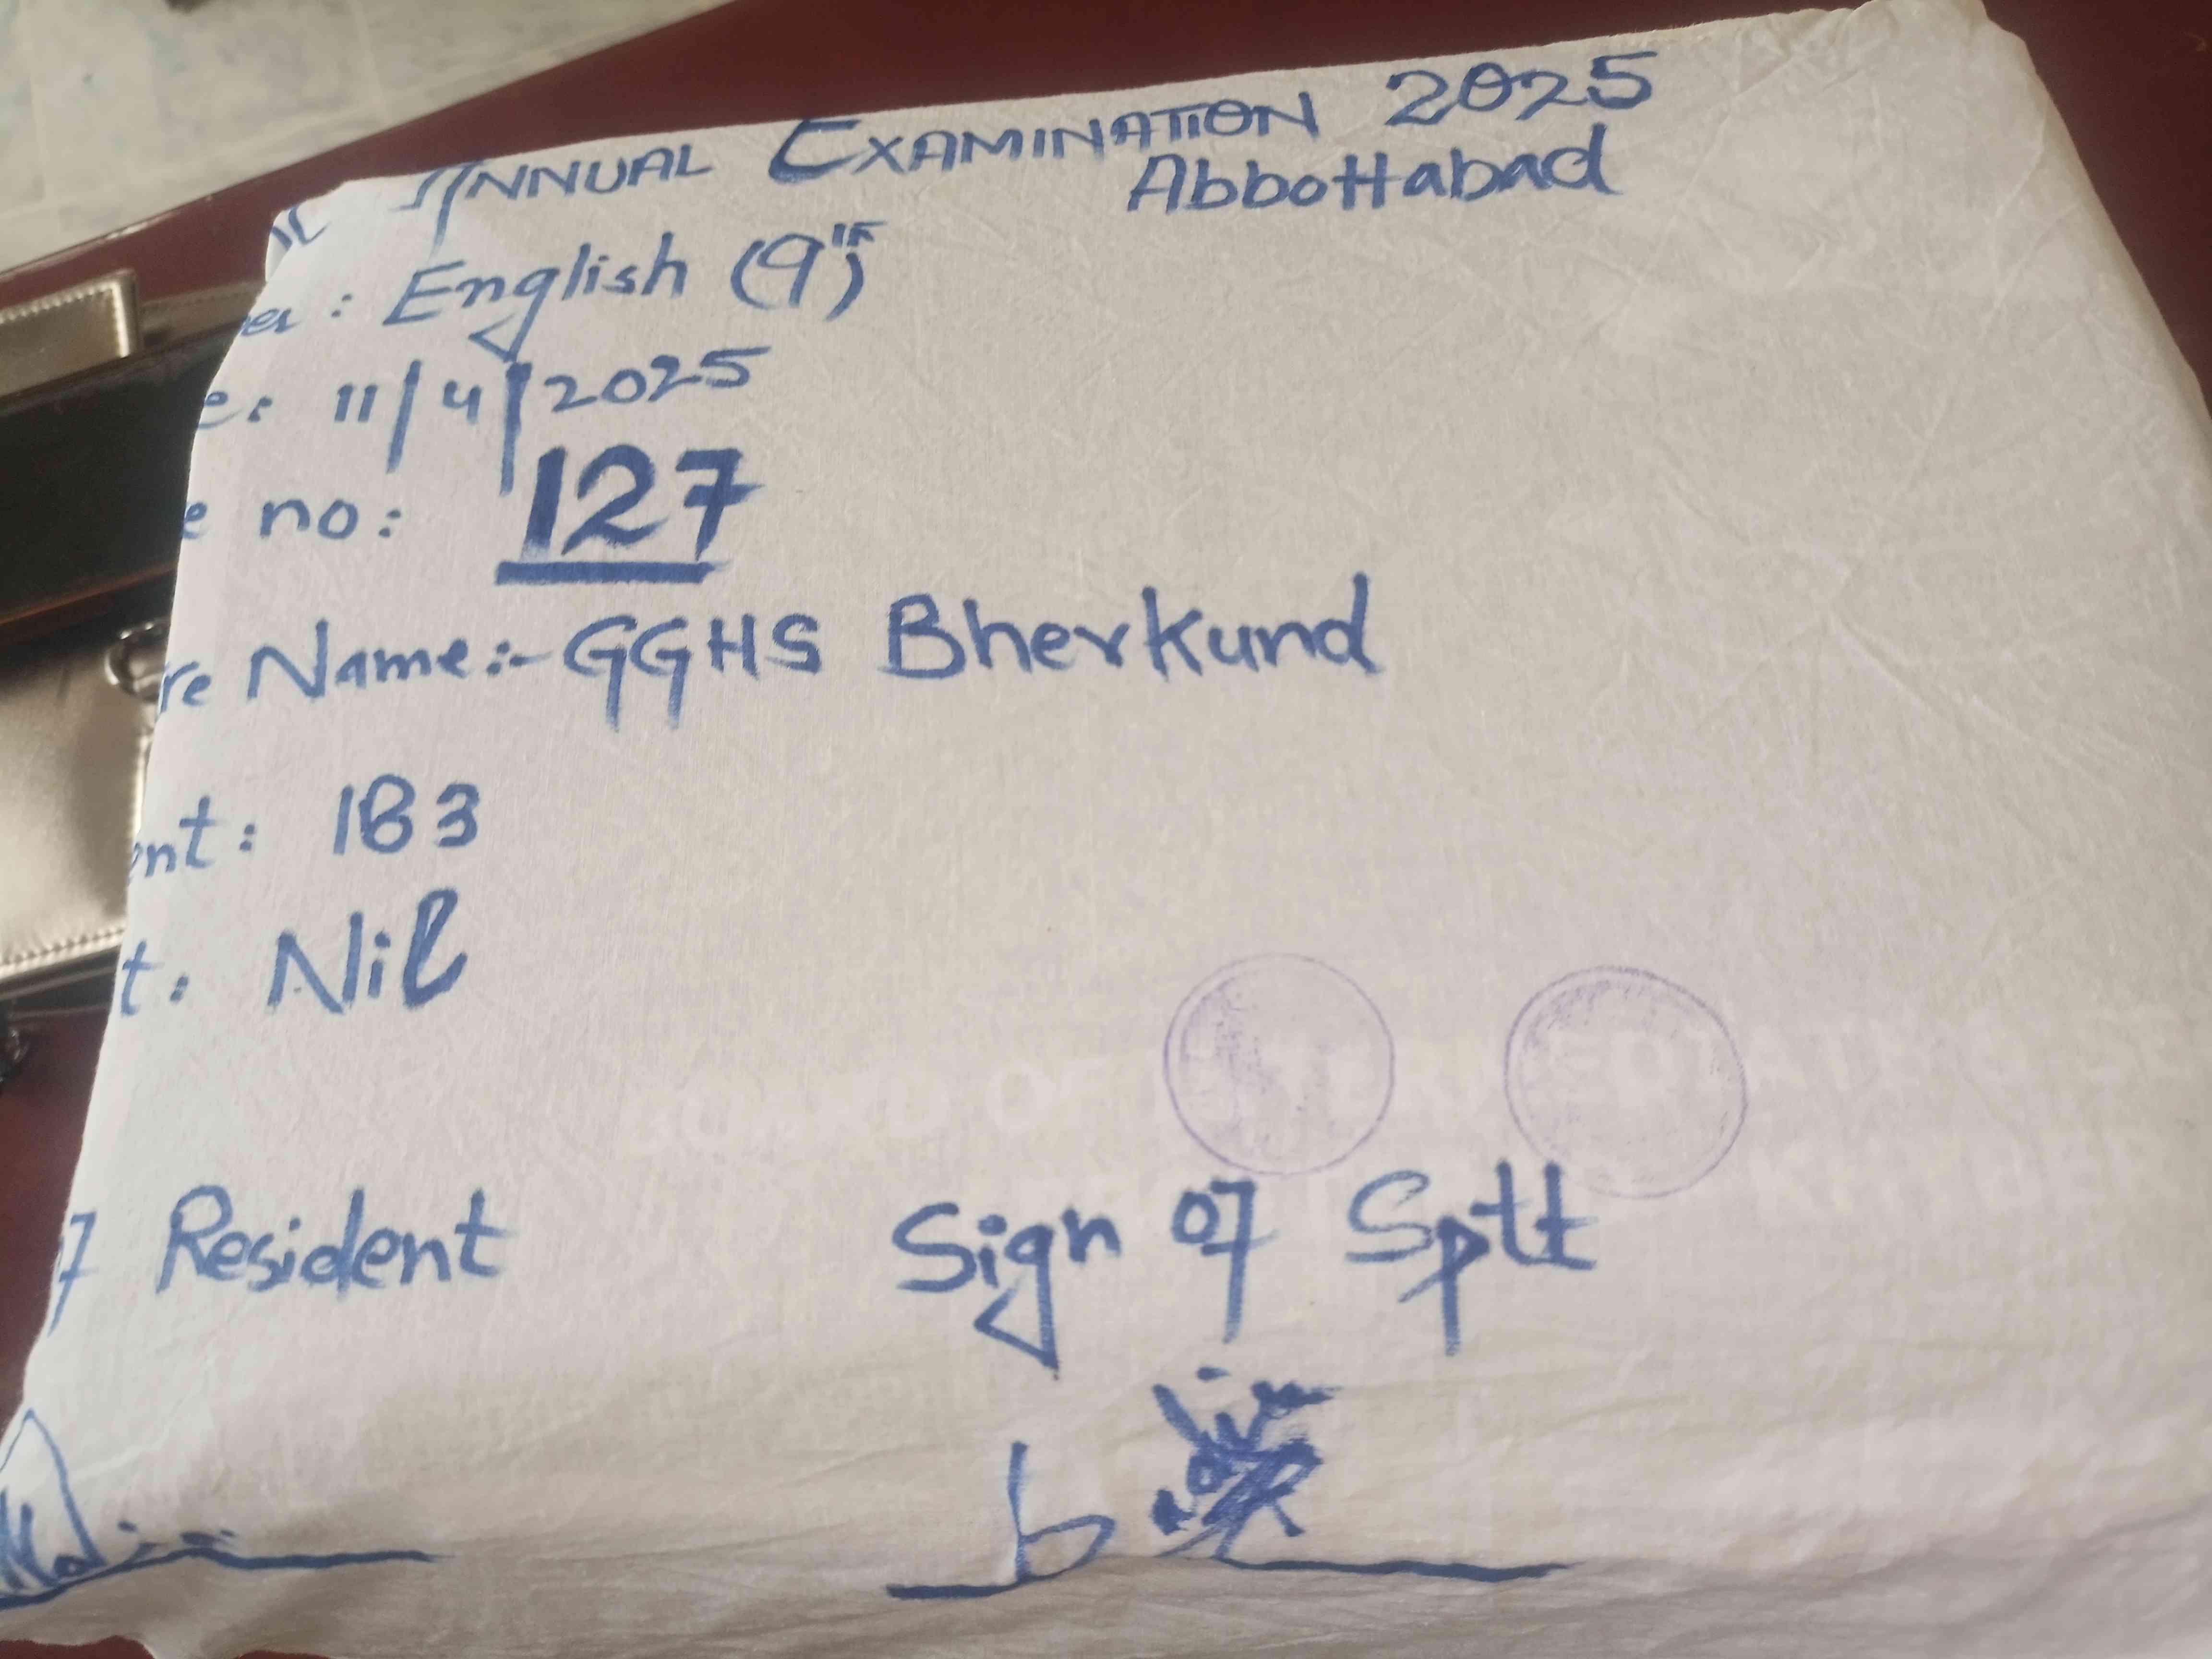 ANNUAL EXAMINATION 2025
Abbottabad
: English (9th)
e: 11/4/2025
e no: 127
re Name:- GGHS Bherkund
nt: 183
t: Nil
BOARD OF INTERMEDIATE & SE
Resident
Sign of Sptt